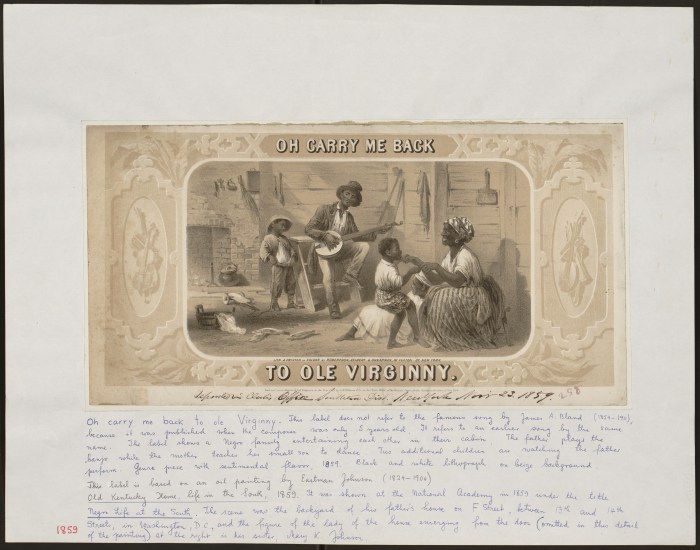 OH CARRY ME BACK
TO OLE VIRGINNY,
Deposited in Clerks Office Southern Dist. New York Nov. 23. 1859. 258
Oh carry me back to ole Virginny. This label does not refer to the famous song by James A. Bland
because it was published when the composer was only 5 years old. It refers to an earlier song by the same
name. The label shows a Negro family entertaining each other in their cabin. The father plays the
banjo while the mother teaches her small son to dance. Two additional children are watching the father
perform. Genre piece with sentimental flavor, 1859. Black and white lithograph on beige background
This label is based on an oil painting by Eastman Johnson
Old Kentucky Home, life in the South, 1859. It was shown at the National Academy in 1859 under the title
Negro life at the South. The scene was the backyard of his father's house on F Street, between 13th and 14th
Streets, in Washington, D.C., and the figure of the lady of the house emerging from the door (omitted in this detail
of the painting) at the right is his sister, Mary Johnson
1859